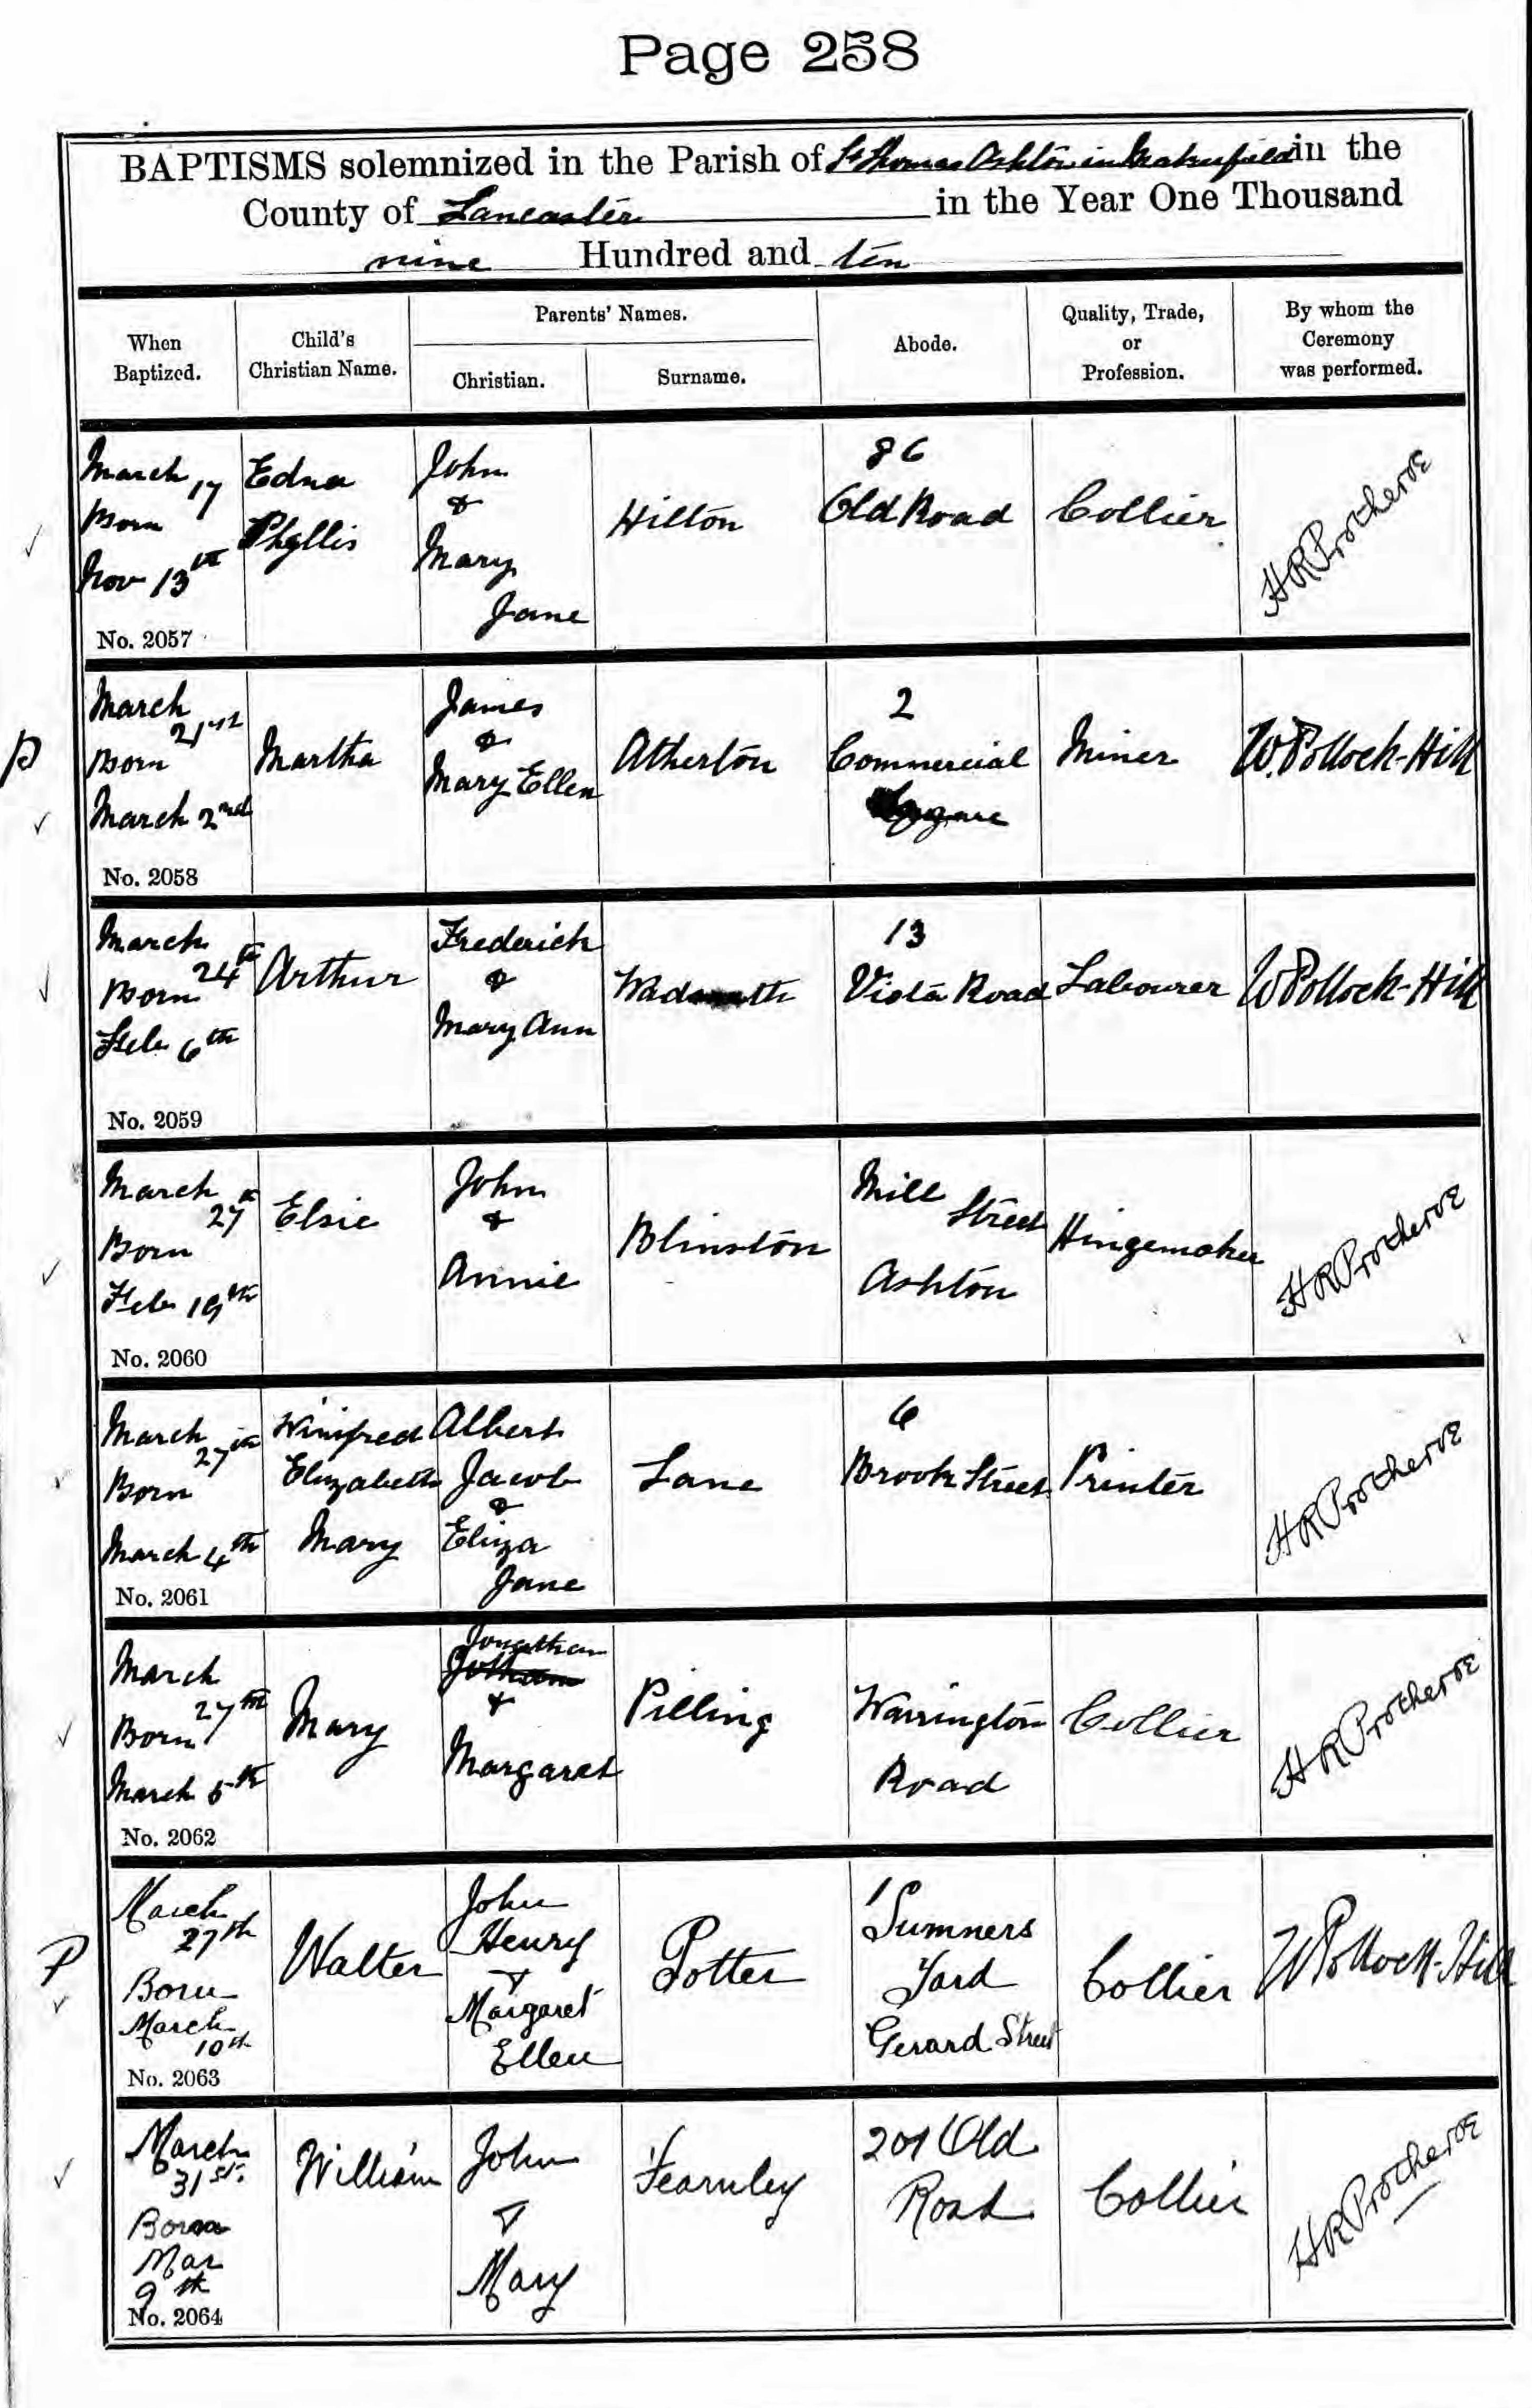 Page 258
BAPTISMS solemnized in the Parish of St Thomas Ashton in Makerfield in the
County of Lancaster in the Year One Thousand
nine Hundred and ten
When Baptized.
Child's Christian Name.
Parents' Names.
Christian.
Surname.
Abode.
Quality, Trade, or Profession.
By whom the Ceremony was performed.
March 17
Born
Nov 13th
No. 2057
Edna
Phyllis
John
&
Mary
Jane
Hilton
86
Old Road
Collier
H R Protheroe
P
March
21st
Born
March 2nd
No. 2058
Martha
James
&
Mary Ellen
Atherton
2
Commercial
Miner
W. Pollock-Hill
March
24th
Born
Feb 6th
No. 2059
Arthur
Frederick
&
Mary Ann
13
Vista Road
Labourer
W Pollock-Hill
March
27th
Born
Feb 19th
No. 2060
Elsie
John
&
Annie
Blinston
Mill
Street
Ashton
Hingemaker
H R Protheroe
March
27th
Born
March 4th
No. 2061
Winifred
Elizabeth
Mary
Albert
Jacob
&
Eliza
Jane
Lane
6
Brook Street
Printer
H R Protheroe
March
27th
Born
March 5th
No. 2062
Mary
Jonathan
Jotham
&
Margaret
Pilling
Warrington
Road
Collier
H R Protheroe
P
March
27th
Born
March
10th
No. 2063
Walter
John
Henry
&
Margaret
Ellen
Potter
1
Sumners
Yard
Gerard Street
Collier
W Pollock-Hill
March
31st.
Born
Mar
9th
No. 2064
William
John
&
Mary
Fearnley
201 Old
Road
Collier
H R Protheroe